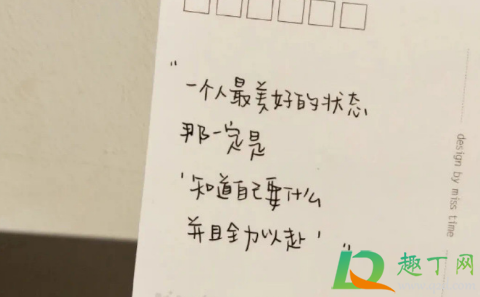 "一个人最美好的状态
那一定是
'知道自己要什么
并且全力以赴' "
design by miss time
趣丁网